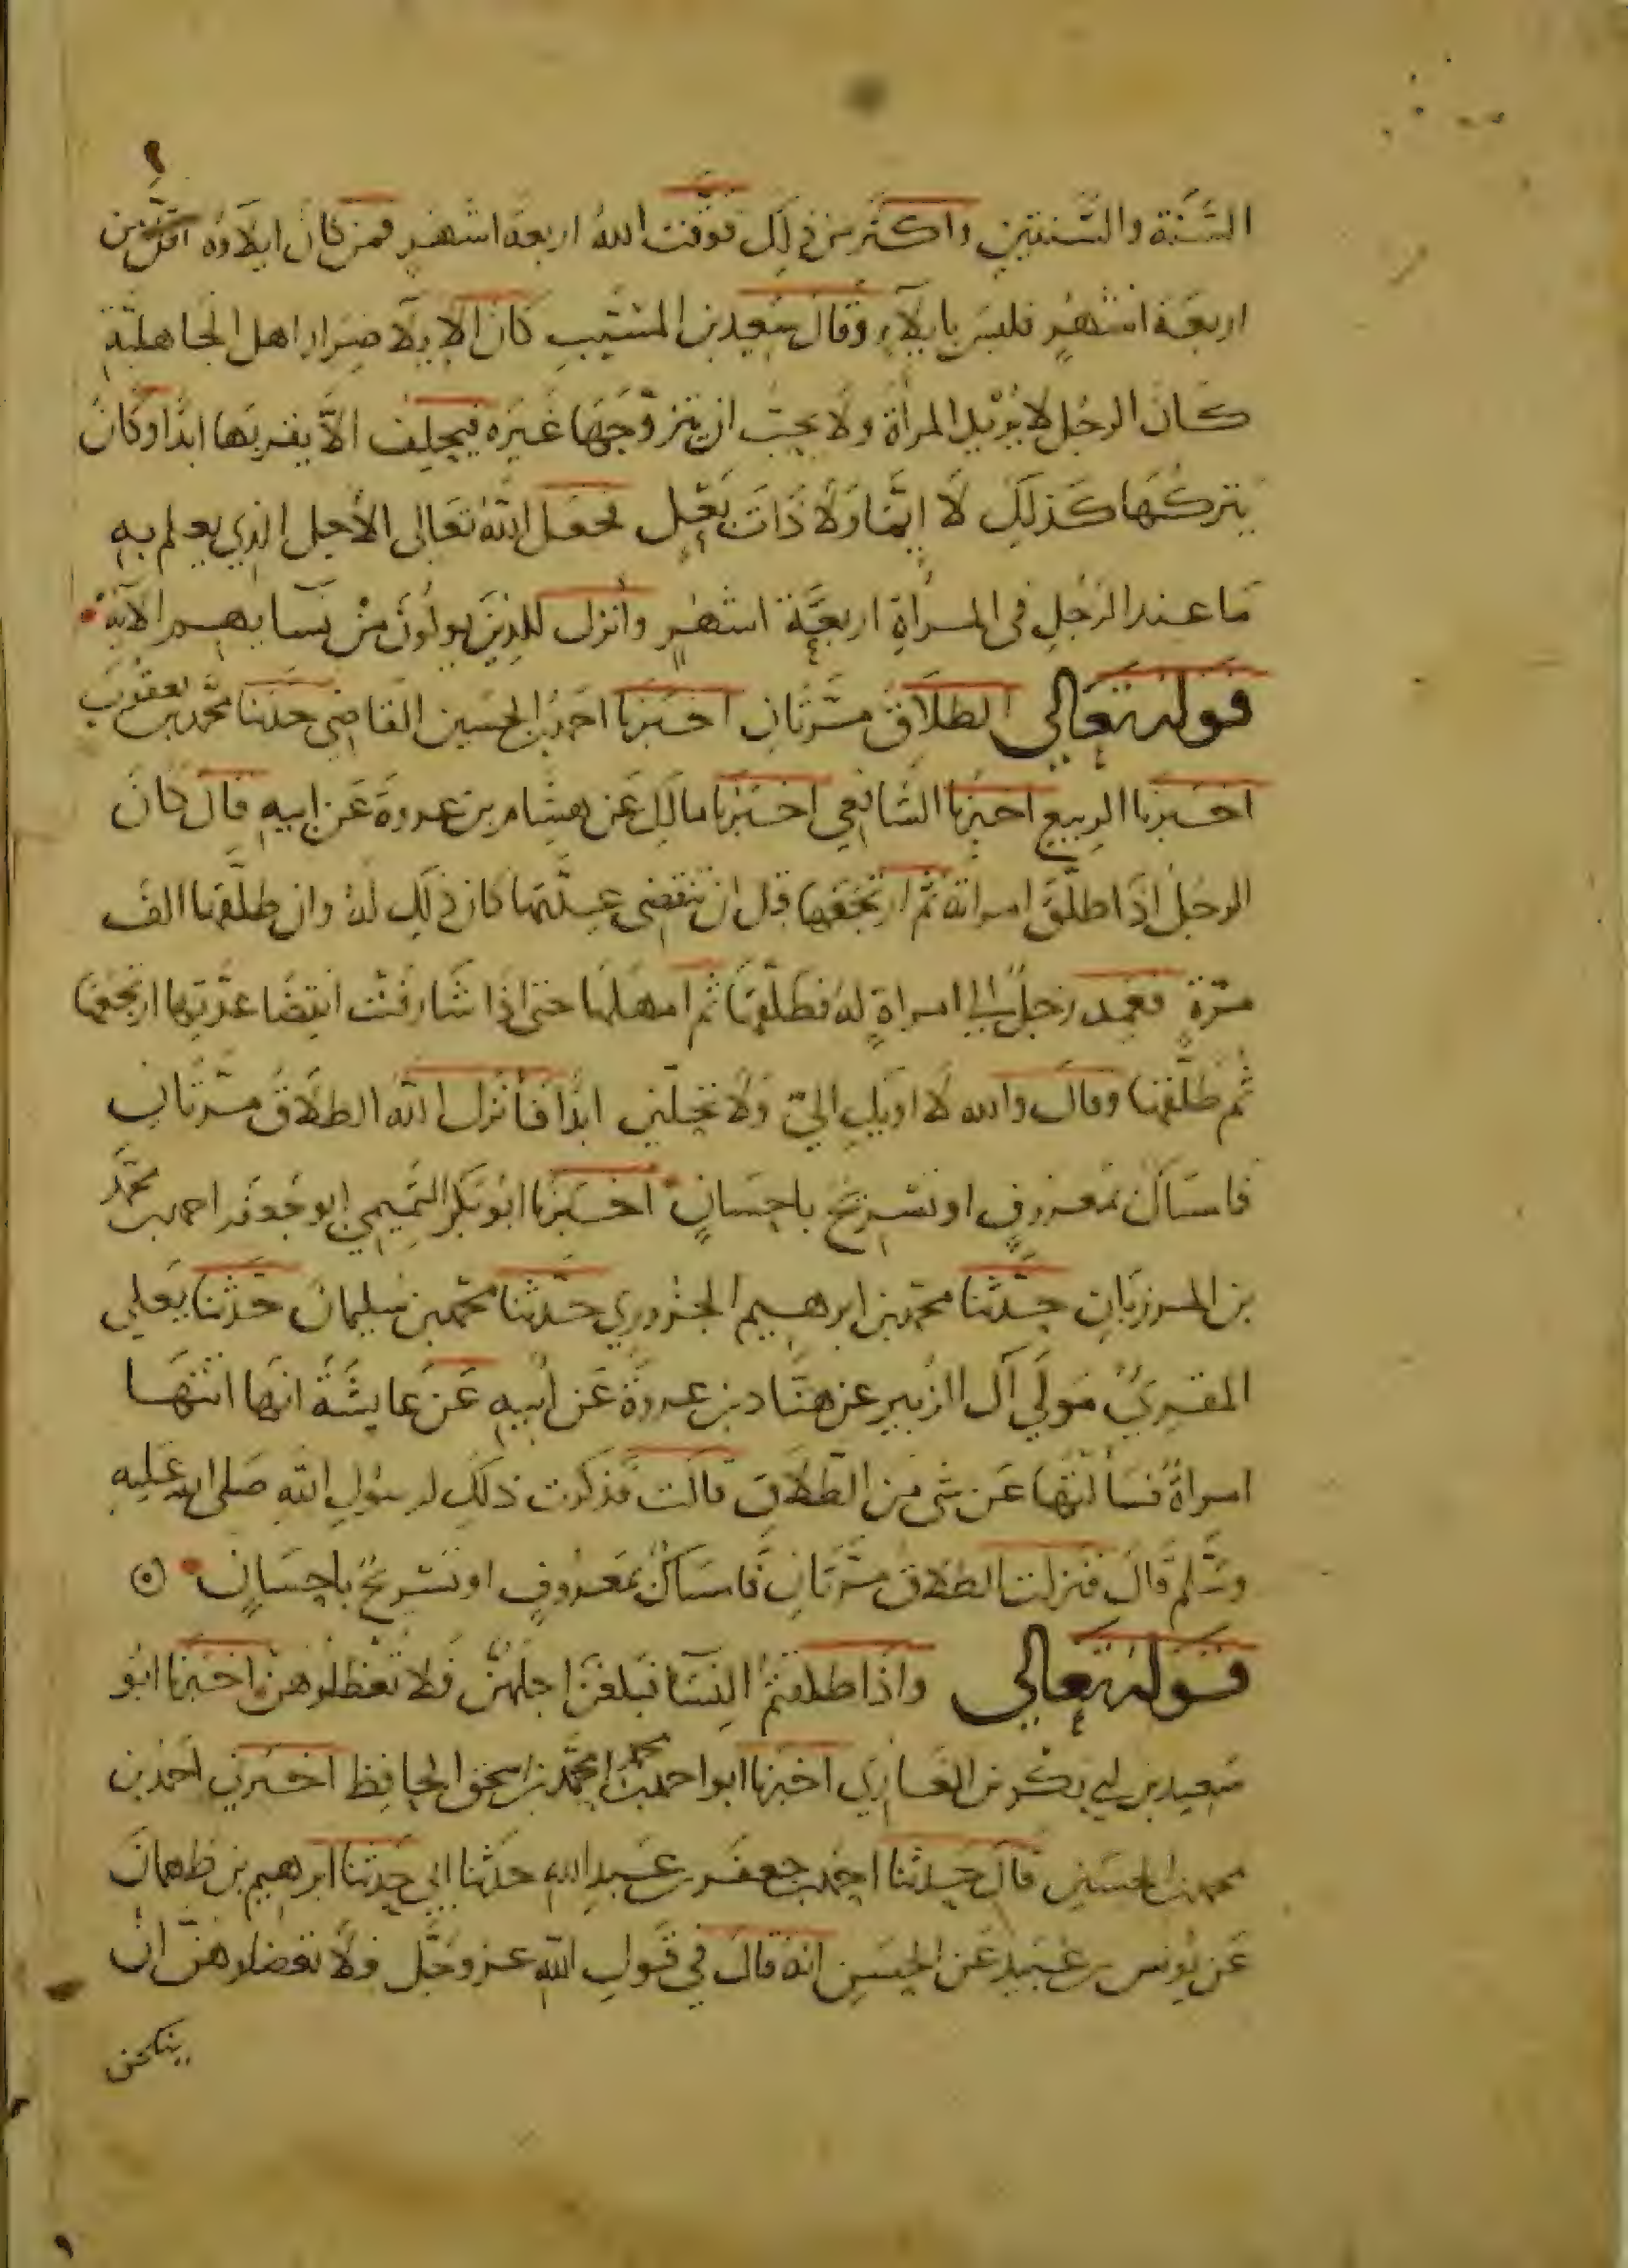 السَّنَة والسَّنتين واكثر من ذلك فوقّت اللهُ اربعة اشهر فمن كان ايلاؤه اقلّ من
اربعة اشهرٍ فليسَ بايلآءٍ وقال سَعيد بن المسَيّبِ كان الايلآ ضِرار اهل الجاهليّة
كان الرجُل لا يُريد المرأة ولا يحبّ ان يتزوّجَهَا غيَره فيحلِف الاّ يقربَها ابدًا وكان
يتركُهَا كذلِكَ لا ايّمًا وَلا ذَاتَ بَعْلٍ فجعَل اللهُ تعَالى الأجل الذي يعلم به
مَا عند الرَجُلِ فى المرأةِ اربعَة اشهرٍ وأنزل للذِينَ يولُونَ مِنْ نسَآيهِم الآية
قوله تعَالي الطلاَق مَرّتانِ اخبَرنا احمَد بن الحسَين القاضِي حدثنا محمّد بن يعقوبَ
اخبَرنا الربيع اخبَرنا الشّافِعي اخبَرنا مالِك عَن هشام بن عروةَ عَن ابيهِ قال كَانَ
الرجُلُ اذَا طلّقَ امراتهُ ثمّ ارتجَعَها قبل ان تنقضى عِدّتها كان ذلك لَهُ وان طلّقها الفَ
مرّةٍ فعَمِد رَجُلٌ الي امراةٍ لهُ فطَلّقهَا ثم امهَلهَا حتى اذا شَارفَتْ انقضَا عدّتها ارتجعهَا
ثُم طَلّقهَا وقالَ والله لا اويكِ اليّ وَلا تحلّينَ ابدًا فأنزلَ اللهُ الطلاَقُ مرّتانِ
فَامسَاكٌ بمَعروفٍ او تسْرِيحٌ باحِسَانٍ اخبَرنا ابُو بَكر التّميمِي ابو جَعفر احمد بن محمّد
بن المرزبَانِ حدّثنا محمّد بن ابرهيم الجزورِي حدّثنا محمّد بن سُليمانَ حَدّثنا يَعلى
المقرِيُ مَولَي آل الزُبير عن هشَام بن عروَة عَن أبيهِ عَن عَايشَةَ انهَا اتتهَا
امراةٌ فسَألتهَا عَن شي مِن الطّلاَقِ قالَت فذكرت ذلكَ لرسُولِ اللهِ صَلى الله عليهِ
وسَّلم قالَ فنزلت الطلاقُ مَرّتَانِ فَامسَاكٌ بمَعرُوفٍ او تَسْرِيحٌ باحِسَانٍ
قوله تعَالي وَاذَا طلقتمُ النِسَآ فبَلغنَ اجلهُنّ فَلا تَعْظلوهنّ اخبَرنا ابُو
سَعيد بن ابي بكر بن الغَازي اخبرنا ابو احمد محمد بن محمّد بن اسحق الحافِظ اخبَرني احمَد بن
محمد بن الحسَينِ قالَ حَدثنا احمَد بن جَعفَر بن عَبدِ اللهِ حَدّثنا ابي حَدثنا ابرهيم بن طهمانَ
عَن يُونس بن عُبيدٍ عَن الحسَنِ انهُ قالَ فِي قولِ اللهِ عز وجَلّ فلا تعضلوهنّ ان
ينكحن
٩